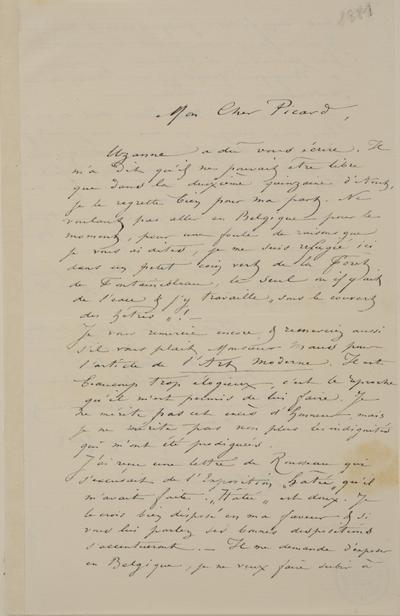 1889
Mon Cher Picard,
Uzanne a dû vous écrire. Il
m'a dit qu'il ne pouvait être libre
que dans la deuxième quinzaine d'Août,
je le regrette bien pour ma part. Ne
voulant pas aller en Belgique pour le
moment, pour une foule de raisons que
je vous ai dites, je me suis refugié ici
dans un petit coin vert de la Forêt
de Fontainebleau, le seul où il y ait
de l'eau & j'y travaille, "sous le couvert
des hêtres"! —
Je vous remercie encore, & remerciez aussi
s'il vous plait Monsieur Maus pour
l'article de l'Art Moderne. Il est
beaucoup trop élogieux, c'est le reproche
qu'il m'est permis de lui faire. Je
ne mérite pas cet excès d'honneur, mais
je ne mérite pas non plus les indignités
qui m'ont été prodiguées.
J'ai reçu une lettre de Rousseau qui
s'excusait de l'Exposition "hâtée" qu'il
m'avait faite. "Hâtée" est doux. Je
le crois bien disposé en ma faveur & si
vous lui parlez ses bonnes dispositions
s'accentueront. — Il me demande d'exposer
en Belgique, je ne veux faire subir à